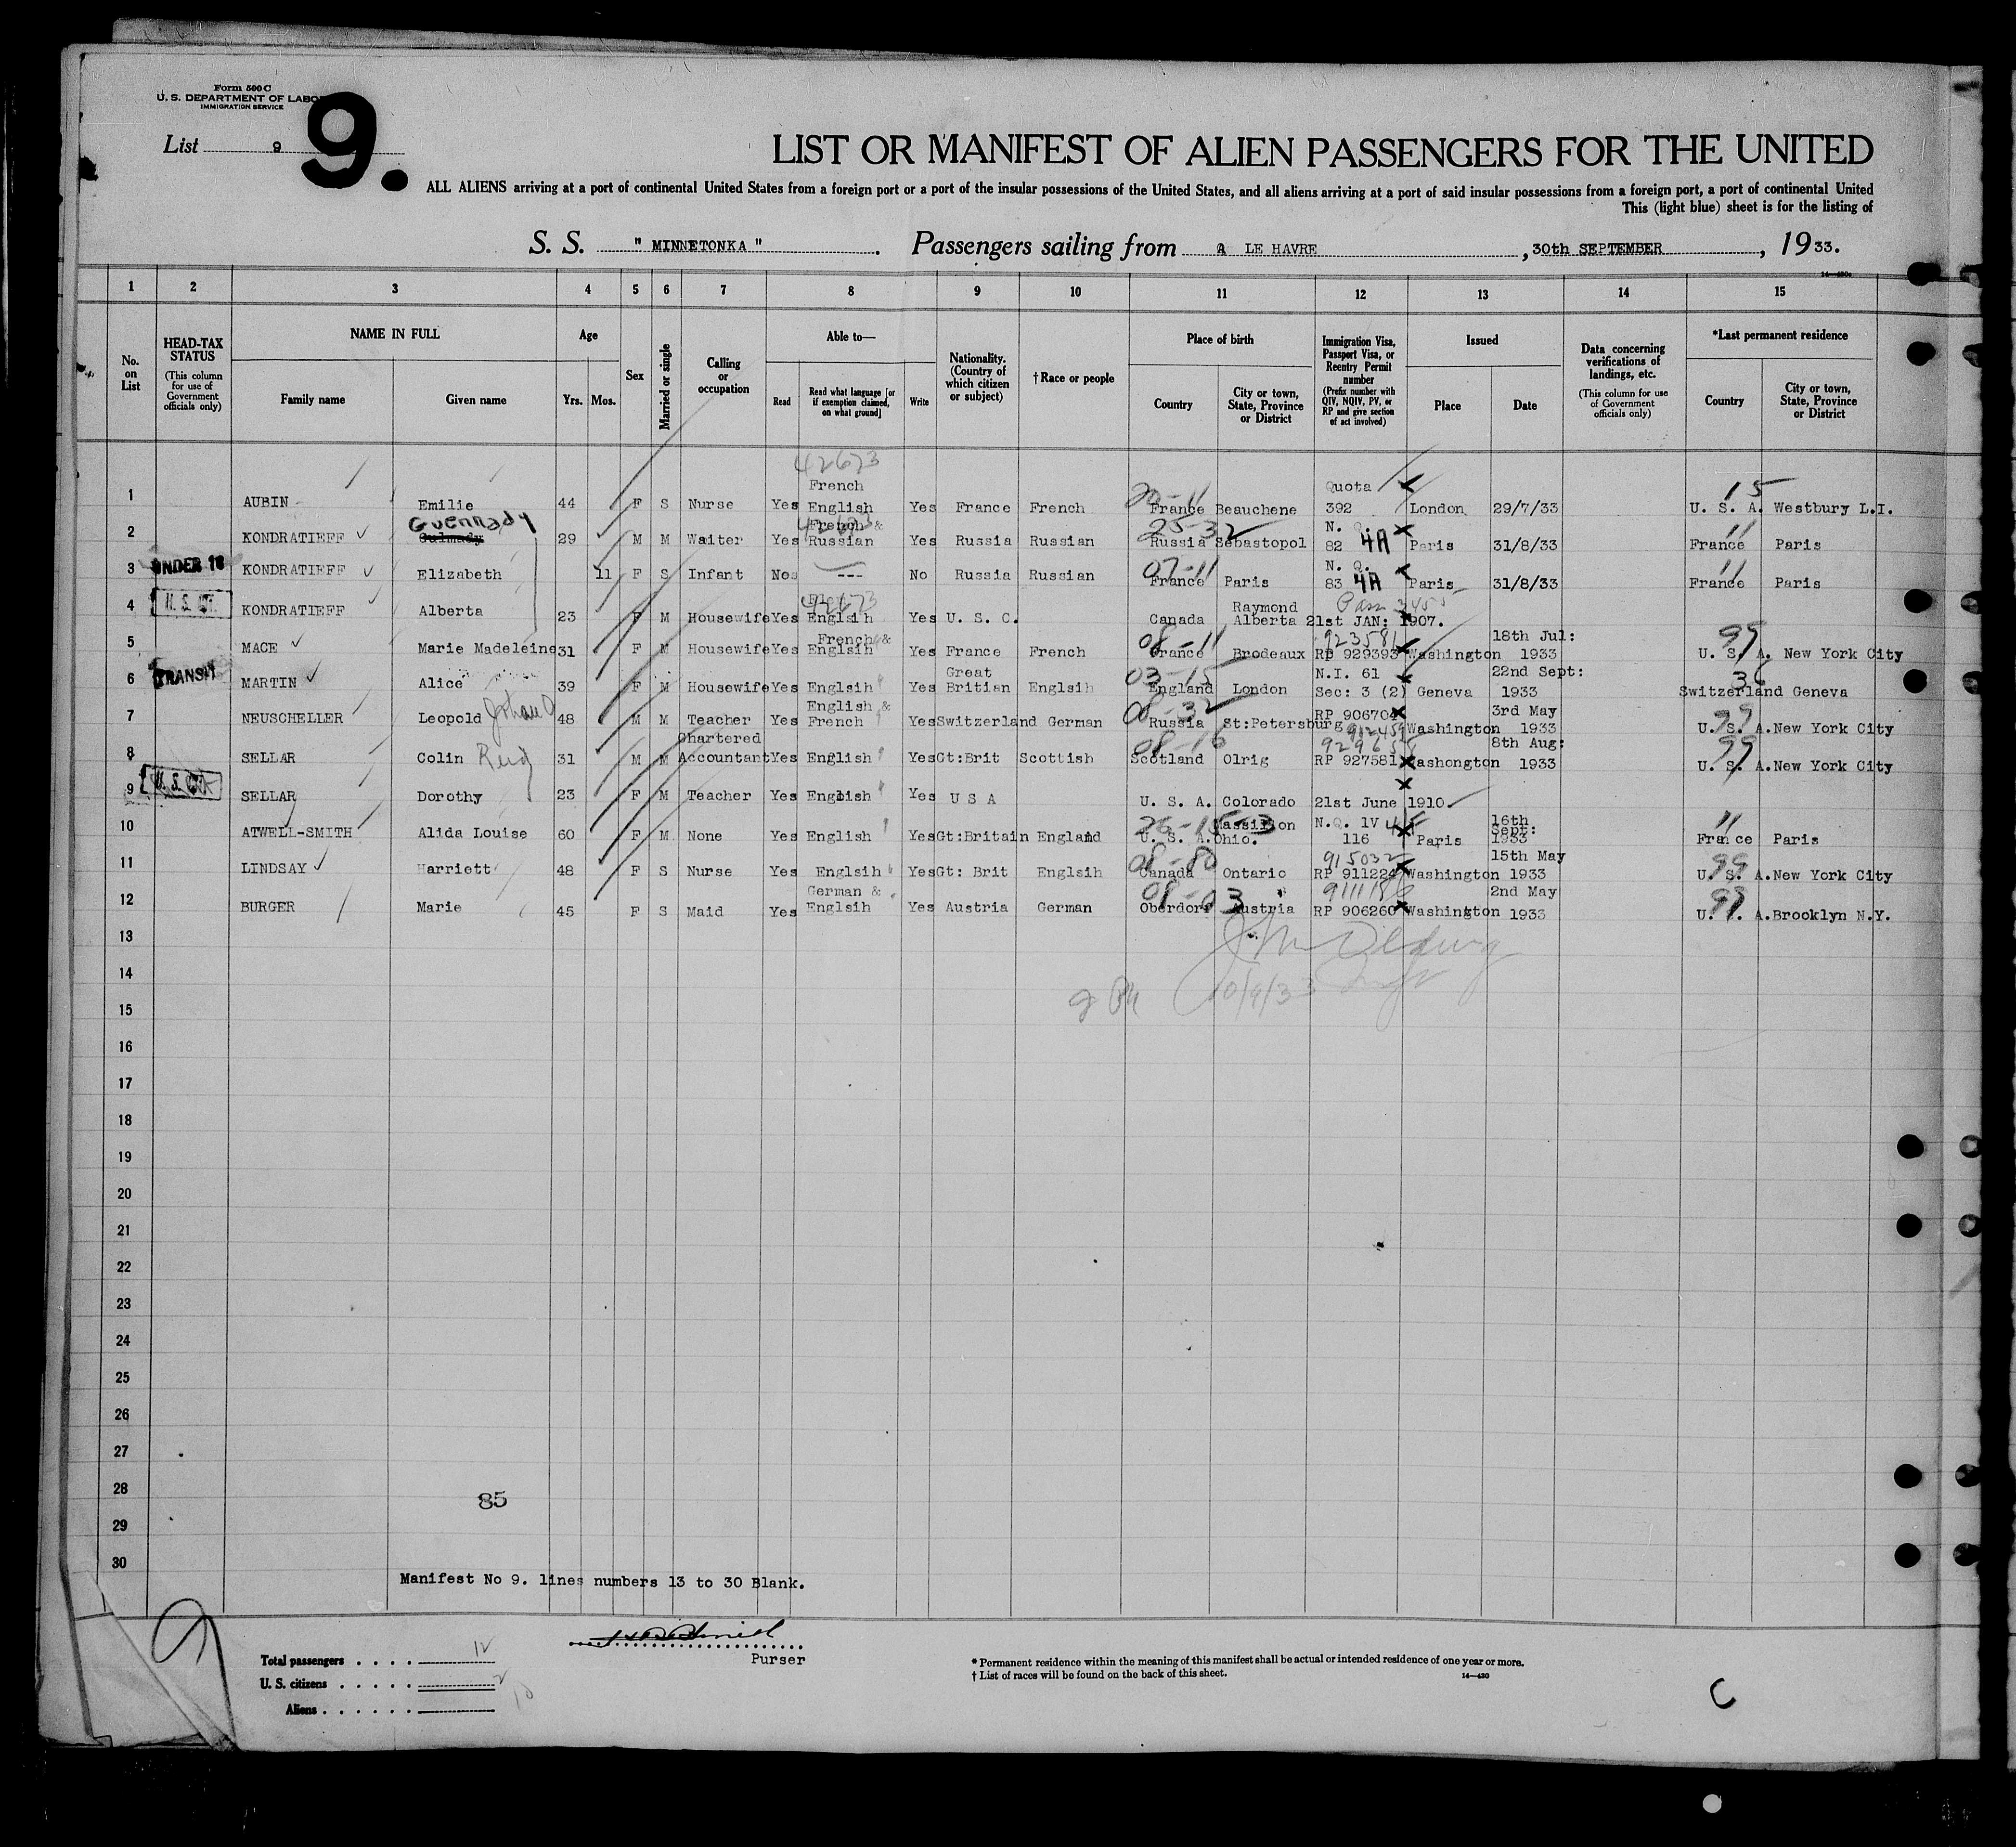 Form 500 C
U. S. DEPARTMENT OF LABO
IMMIGRATION SERVICE
List 9 9.
LIST OR MANIFEST OF ALIEN PASSENGERS FOR THE UNITED
ALL ALIENS arriving at a port of continental United States from a foreign port or a port of the insular possessions of the United States, and all aliens arriving at a port of said insular possessions from a foreign port, a port of continental United
This (light blue) sheet is for the listing of
S. S. " MINNETONKA ". Passengers sailing from LE HAVRE, 30th SEPTEMBER, 1933.
1 2 3 4 5 6 7 8 9 10 11 12 13 14 15
No. on List
HEAD-TAX STATUS (This column for use of Government officials only)
NAME IN FULL Family name Given name
Age Yrs. Mos.
Sex
Married or single
Calling or occupation
Able to— Read Read what language [or if exemption claimed, on what ground] Write
Nationality. (Country of which citizen or subject)
†Race or people
Place of birth Country City or town, State, Province or District
Immigration Visa, Passport Visa, or Reentry Permit number (Prefix number with QIV, NQIV, PV, or RP and give section of act involved)
Issued Place Date
Data concerning verifications of landings, etc. (This column for use of Government officials only)
*Last permanent residence Country City or town, State, Province or District
42673
1 AUBIN Emilie 44 F S Nurse Yes French English Yes France French France Beauchene Quota 392 London 29/7/33 15 U. S. A. Westbury L.I.
2 KONDRATIEFF Guennady 29 M M Waiter Yes French & Russian Yes Russia Russian 25-32 Russia Sebastopol N. Q. 82 4A Paris 31/8/33 11 France Paris
3 UNDER 16 KONDRATIEFF Elizabeth 11 F S Infant No --- No Russia Russian 07-11 France Paris N. Q. 83 4A Paris 31/8/33 11 France Paris
4 U. S. Cit. KONDRATIEFF Alberta 23 F M Housewife Yes 42673 Englsih Yes U. S. C. Canada Raymond Alberta 21st JAN: 1907.
5 MACE Marie Madeleine 31 F M Housewife Yes French & Englsih Yes France French 08-11 France Brodeaux 923581 RP 929393 Washington 18th Jul: 1933 99 U. S. A. New York City
6 TRANSIT MARTIN Alice 39 F M Housewife Yes Englsih Yes Great Britian Englsih 03-15 England London N.I. 61 Sec: 3 (2) Geneva 22nd Sept: 1933 36 Switzerland Geneva
7 NEUSCHELLER Leopold 48 M M Teacher Yes English & French Yes Switzerland German 08-32 Russia St:Petersburg RP 906704 912459 Washington 3rd May 1933 99 U. S. A. New York City
8 SELLAR Colin Reid 31 M M Chartered Accountant Yes English Yes Gt:Brit Scottish 08-15 Scotland Olrig RP 927581 Washongton 8th Aug: 1933 99 U. S. A. New York City
9 U. S. Cit SELLAR Dorothy 23 F M Teacher Yes English Yes U S A U. S. A. Colorado 21st June 1910
10 ATWELL-SMITH Alida Louise 60 F M None Yes English Yes Gt:Britain England U. S. A. Massillon Ohio. N.Q. 1V 116 Paris 16th Sept: 1933 11 France Paris
11 LINDSAY Harriett 48 F S Nurse Yes Englsih Yes Gt: Brit Englsih 08-80 Canada Ontario 915032 RP 911224 Washington 15th May 1933 99 U. S. A. New York City
12 BURGER Marie 45 F S Maid Yes German & Englsih Yes Austria German 08-03 Oberdorf Austria RP 906260 Washington 2nd May 1933 99 U. S. A. Brooklyn N.Y.
13
14
10/9/33
15
16
17
18
19
20
21
22
23
24
25
26
27
28
85
29
30
Manifest No 9. lines numbers 13 to 30 Blank.
9
Purser
Total passengers . . . . 12
U. S. citizens . . . . . 2
Aliens . . . . . . 10
* Permanent residence within the meaning of this manifest shall be actual or intended residence of one year or more.
† List of races will be found on the back of this sheet. 14—430
C